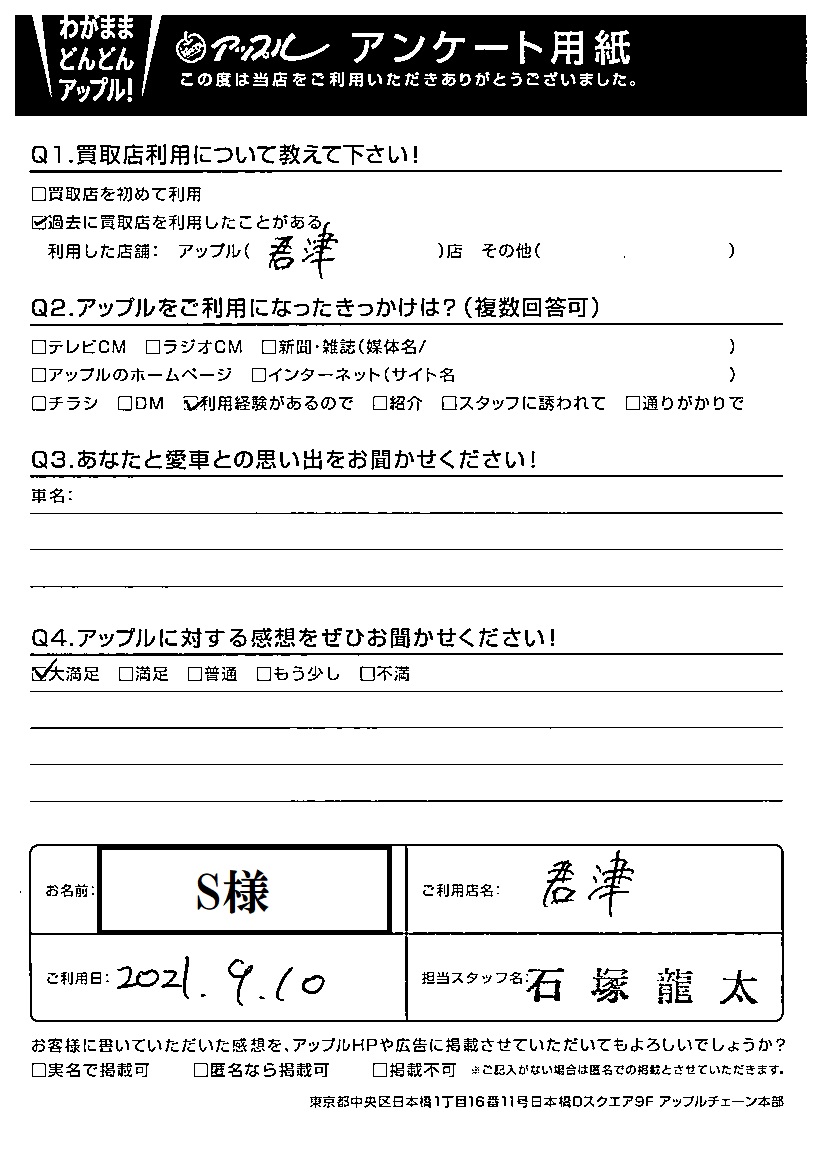 わがまま
どんどん
アップル!
アップル アンケート用紙
この度は当店をご利用いただきありがとうございました。
Q1.買取店利用について教えて下さい!
□買取店を初めて利用
☑過去に買取店を利用したことがある
利用した店舗: アップル( 君津 )店 その他( )
Q2.アップルをご利用になったきっかけは?(複数回答可)
□テレビCM □ラジオCM □新聞・雑誌(媒体名/ )
□アップルのホームページ □インターネット(サイト名 )
□チラシ □DM ☑利用経験があるので □紹介 □スタッフに誘われて □通りがかりで
Q3.あなたと愛車との思い出をお聞かせください!
車名:
Q4.アップルに対する感想をぜひお聞かせください!
☑大満足 □満足 □普通 □もう少し □不満
お名前: S様
ご利用店名: 君津
ご利用日: 2021.9.10
担当スタッフ名: 石塚龍太
お客様に書いていただいた感想を、アップルHPや広告に掲載させていただいてもよろしいでしょうか?
□実名で掲載可 □匿名なら掲載可 □掲載不可 ※ご記入がない場合は匿名での掲載とさせていただきます。
東京都中央区日本橋1丁目16番11号日本橋Dスクエア9F アップルチェーン本部